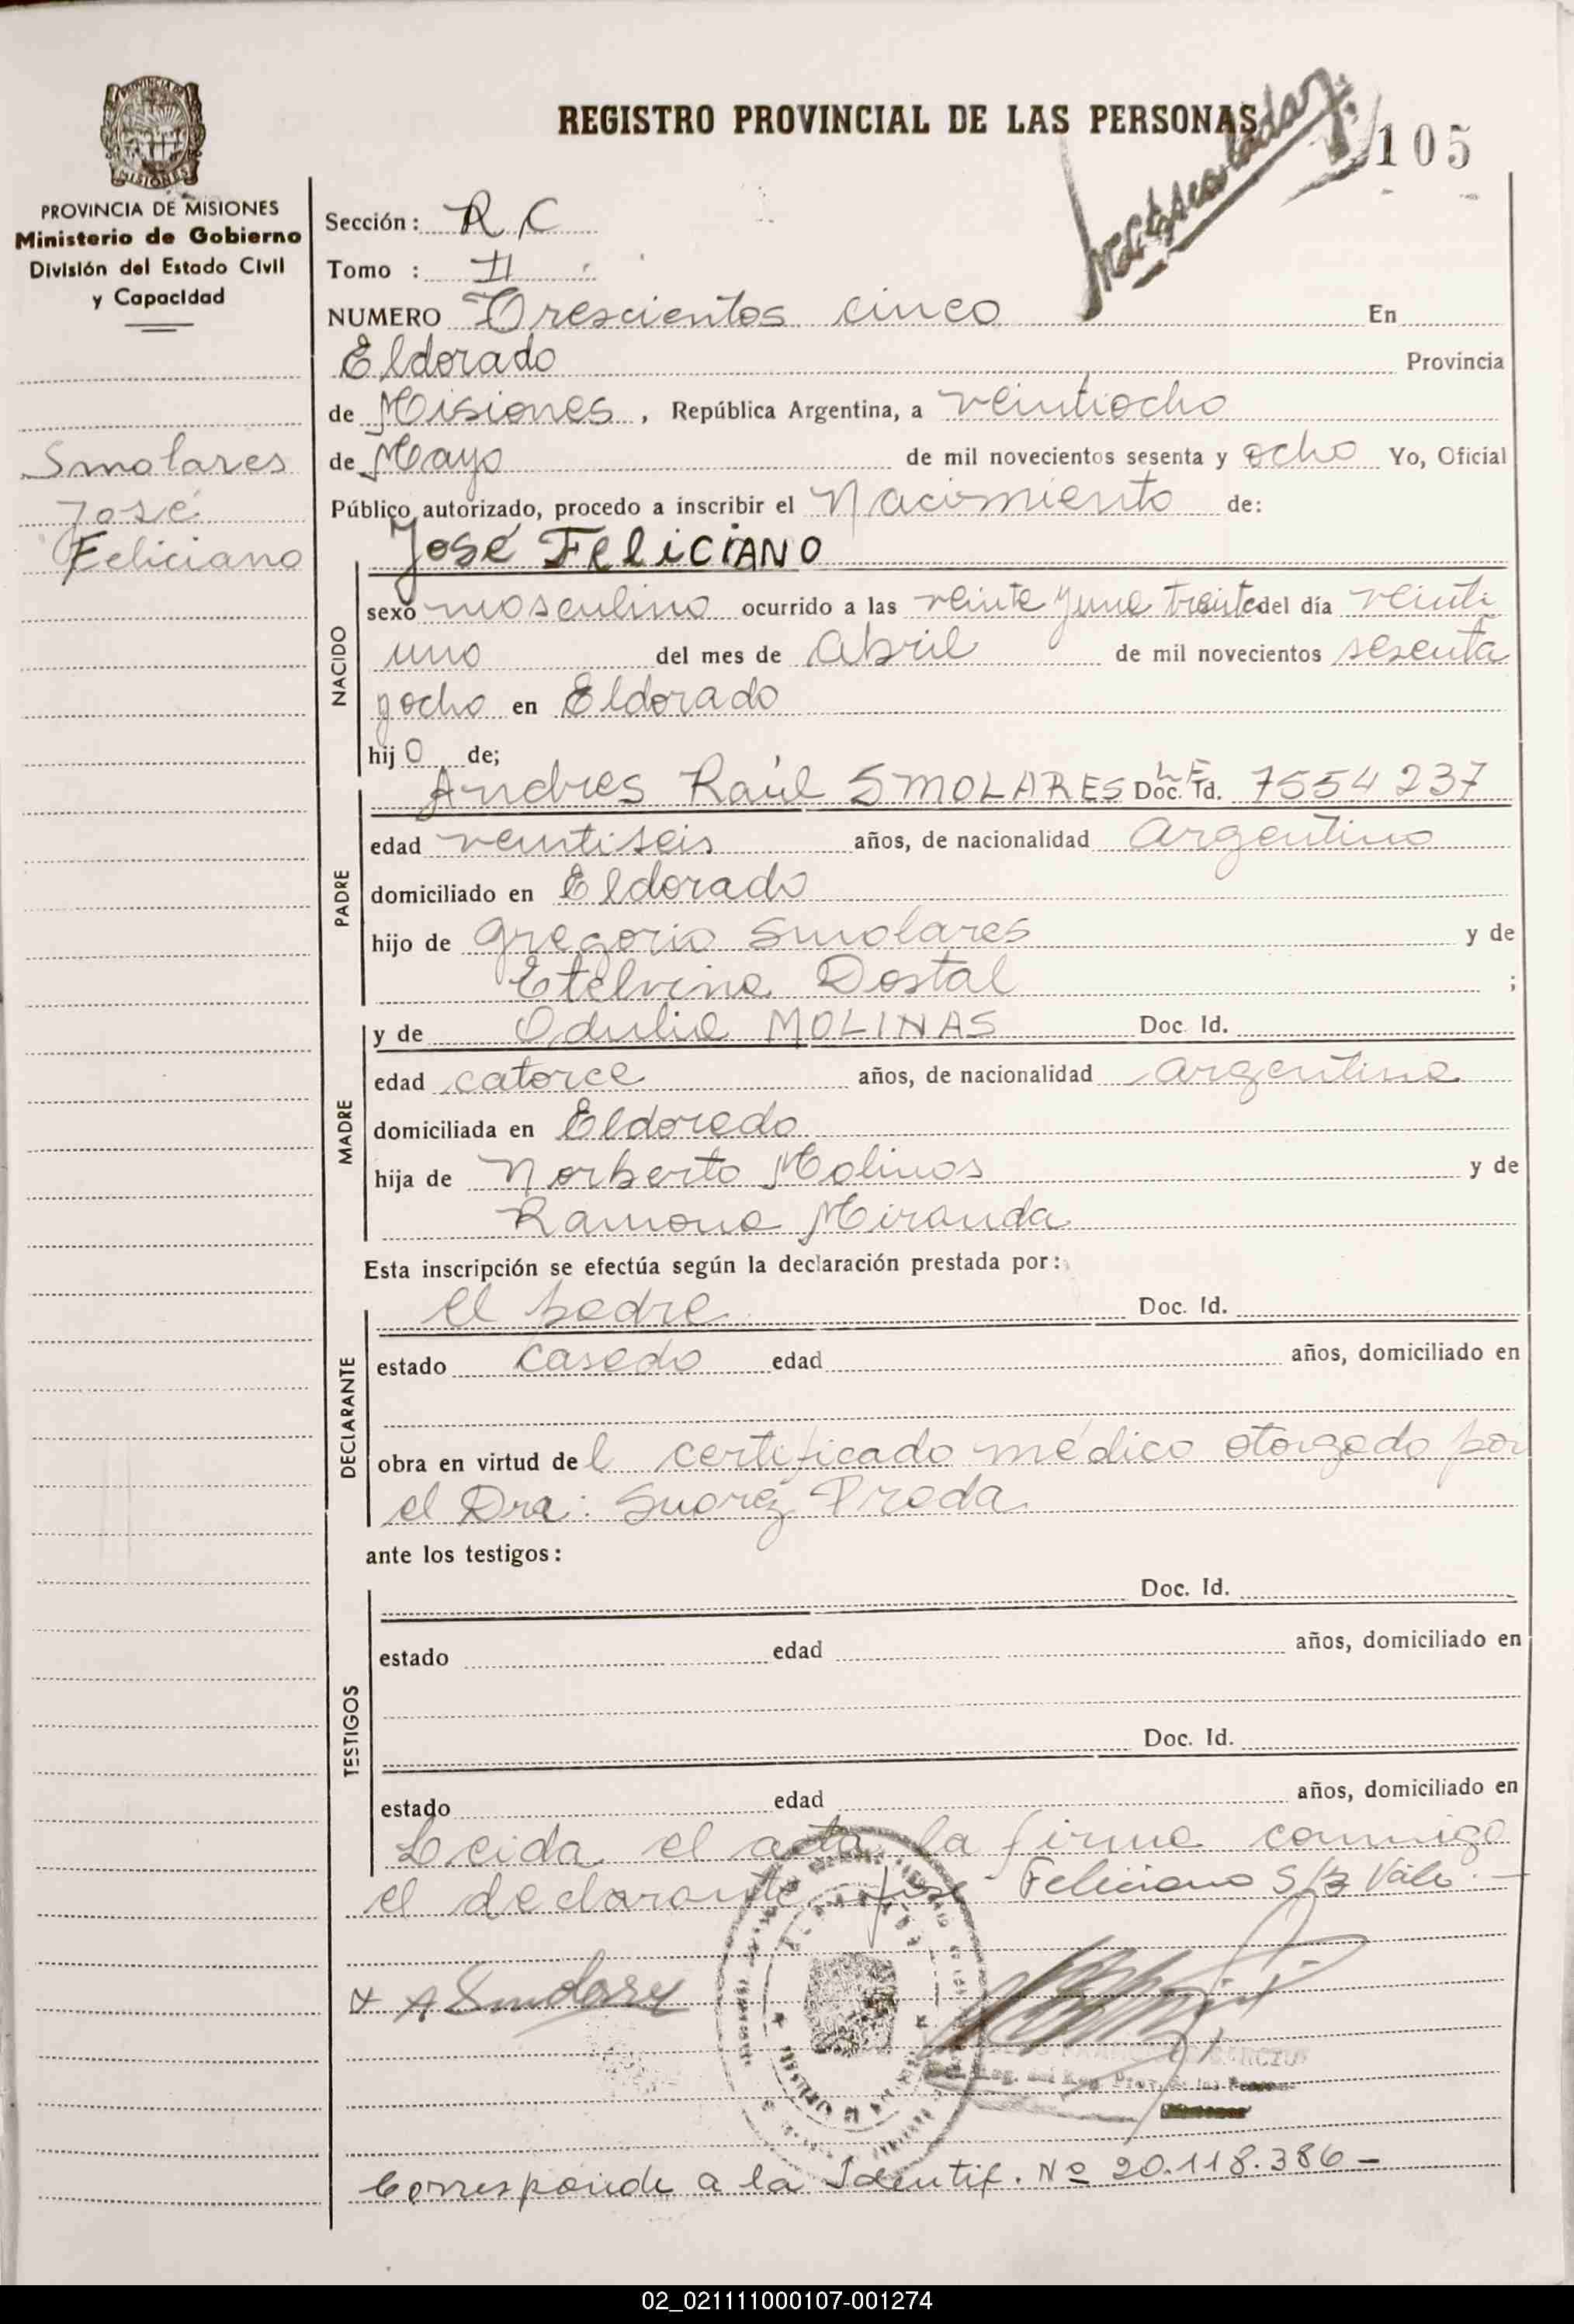 REGISTRO PROVINCIAL DE LAS PERSONAS
105
PROVINCIA DE MISIONES
Ministerio de Gobierno
División del Estado Civil
y Capacidad
Smolares
José
Feliciano
Sección: R C
Tomo : II
NUMERO Trescientos cinco En
Eldorado Provincia
de Misiones, República Argentina, a veintiocho
de Mayo de mil novecientos sesenta y ocho Yo, Oficial
Público autorizado, procedo a inscribir el Nacimiento de:
José FELICIANO
NACIDO
sexo masculino ocurrido a las veinte y una treinta del día veinti
uno del mes de Abril de mil novecientos sesenta
y ocho en Eldorado
hijo de;
PADRE
Andres Raúl SMOLARES L E Doc. Id. 7554237
edad veintiseis años, de nacionalidad Argentino
domiciliado en Eldorado
hijo de Gregorio Smolares y de
Etelvina Dostal ;
MADRE
y de Odulia MOLINAS Doc. Id.
edad catorce años, de nacionalidad Argentina
domiciliada en Eldorado
hija de Norberto Molinas y de
Ramona Miranda
Esta inscripción se efectúa según la declaración prestada por:
DECLARANTE
el padre Doc. Id.
estado casado edad años, domiciliado en
obra en virtud del certificado médico otorgado por
el Dra: Suarez Prada
ante los testigos:
TESTIGOS
Doc. Id.
estado edad años, domiciliado en
Doc. Id.
estado edad años, domiciliado en
Leida el acta la firma conmigo
el declarante José Feliciano S/B Vale.-
A Smolares
Corresponde a la Identif. Nº 20.118.386-
02_021111000107-001274